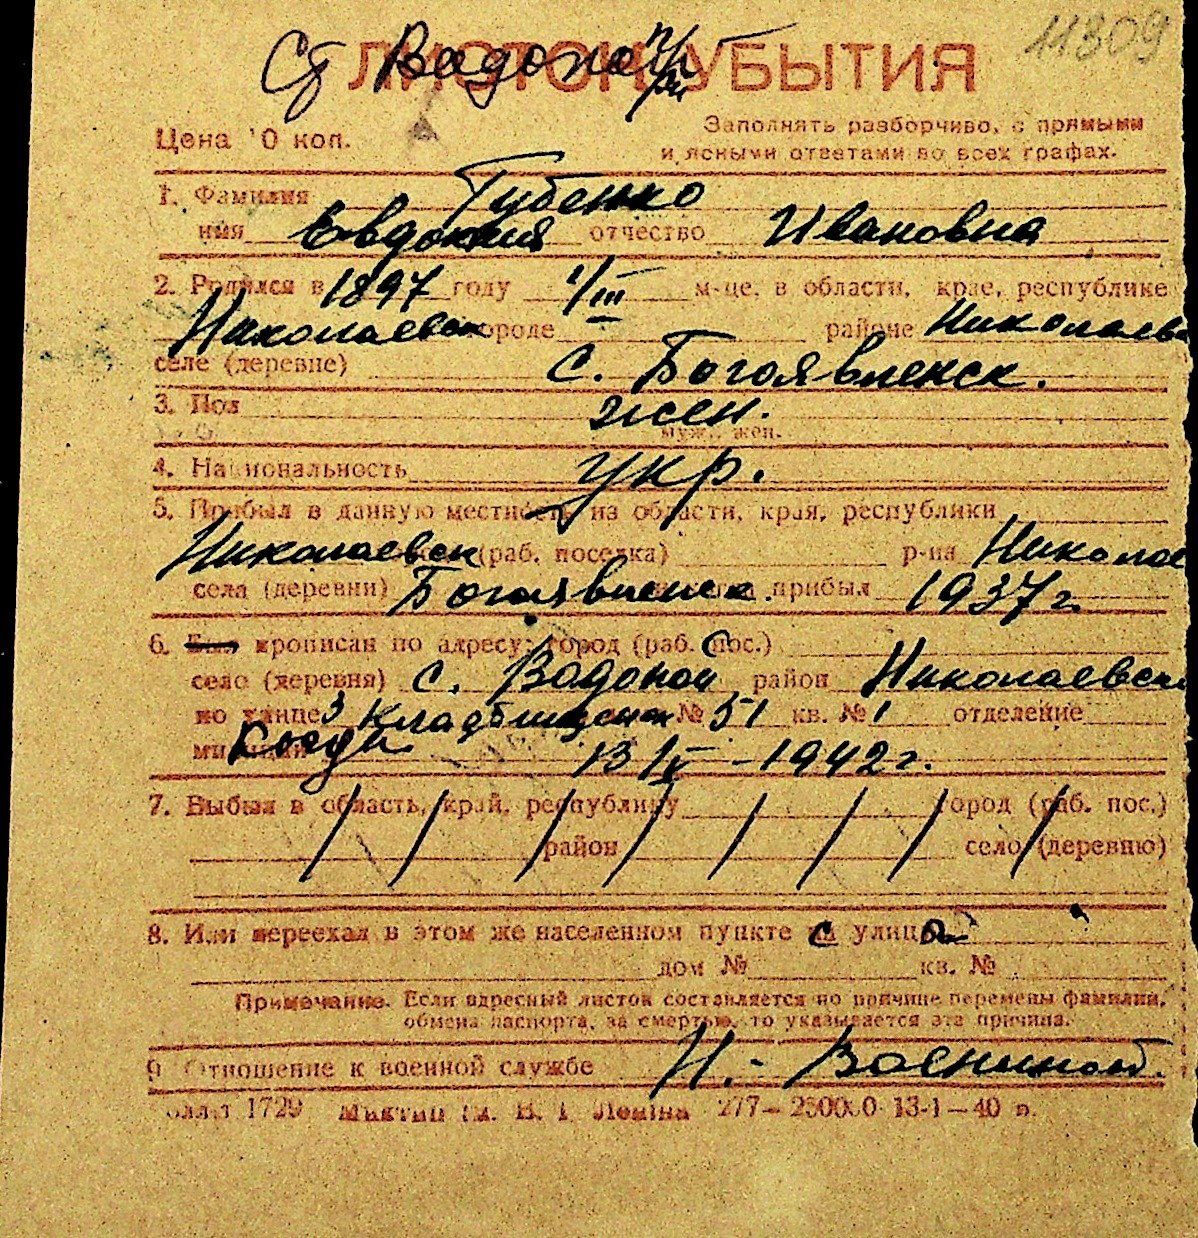 11309
Ст Водопой
ЛИСТОК УБЫТИЯ
Цена 10 коп.
Заполнять разборчиво, с прямыми
и ясными ответами во всех графах.
1. Фамилия Губенко
имя Евдокия отчество Ивановна
2. Родился в 1897 году 1/III м-це, в области, крае, республике
Николаевск городе районе Николаевс
селе (деревне) с. Богоявленск.
3. Пол жен.
муж., жен.
4. Национальность укр.
5. Прибыл в данную местность из области, края, республики
Николаевск (раб. поселка) р-на Николае
села (деревни) Богоявленск. прибыл 1937 г.
6. Был прописан по адресу: город (раб. пос.)
село (деревня) с. Водопой район Николаевск
по улице 3 Кладбищенск № 51 кв. № 1 отделение
милиции Когда 13/V - 1942 г.
7. Выбыл в область, край, республику город (раб. пос.)
район село (деревню)
8. Или переехал в этом же населенном пункте с улицы
дом № кв. №
Примечание. Если адресный листок составляется по причине перемены фамилии,
обмена паспорта, за смертью, то указывается эта причина.
9. Отношение к военной службе Н.- Военнооб.
1729 им. В. И. Леніна 277— 250000 13-1—40 р.